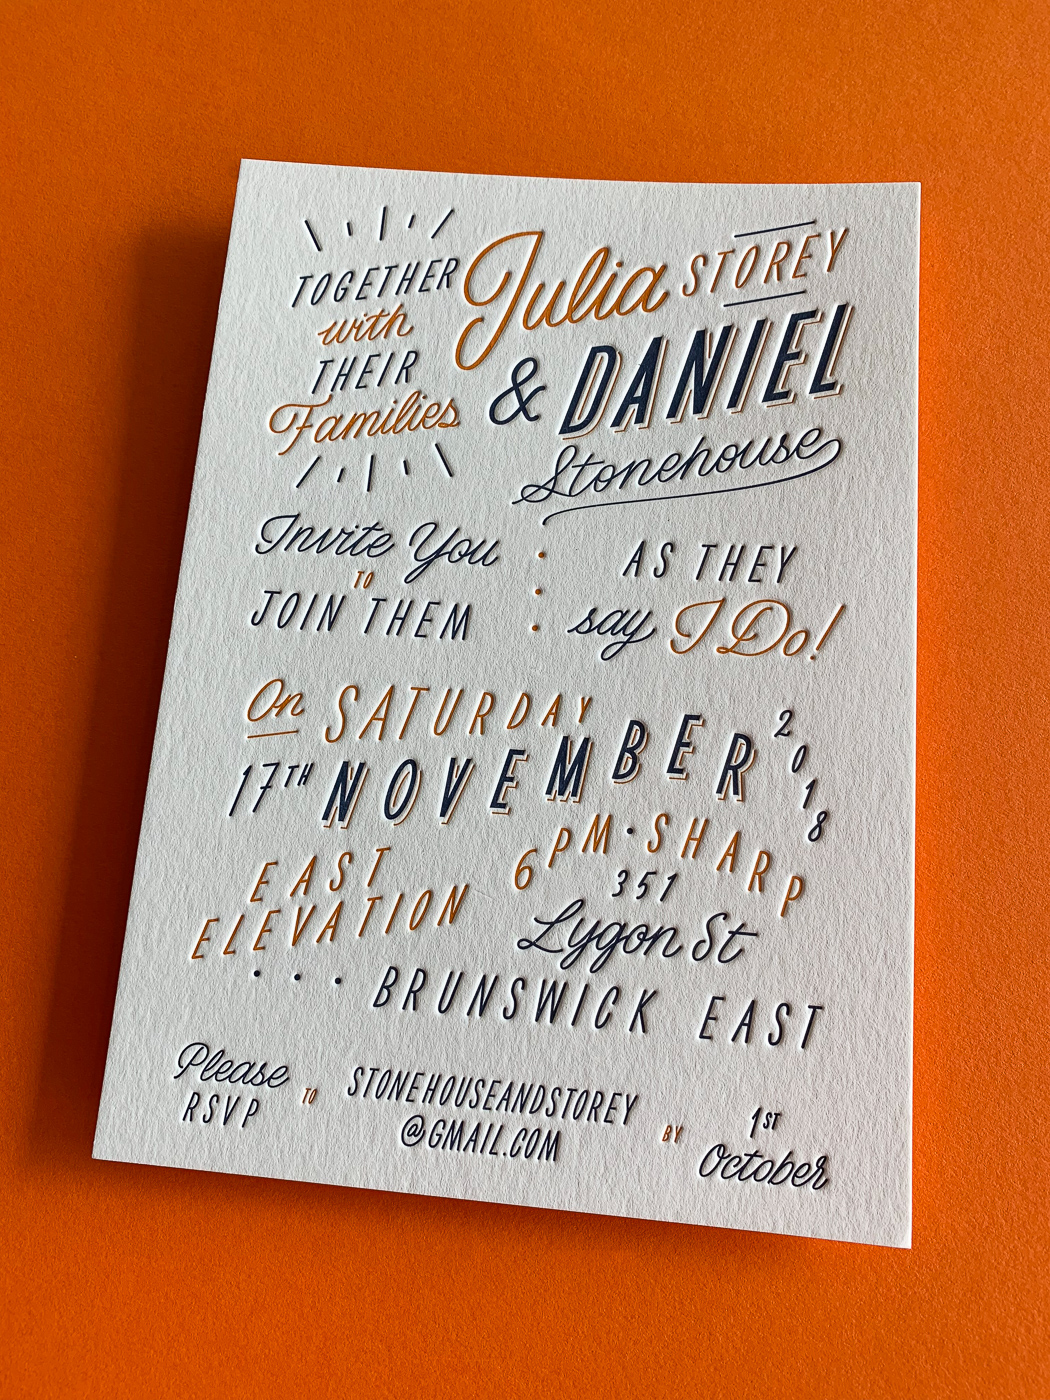 TOGETHER
with
THEIR
Families
Julia STOREY
& DANIEL
Stonehouse
Invite You
TO
JOIN THEM
AS THEY
say I Do!
On SATURDAY
17TH NOVEMBER 2018
6PM • SHARP
EAST
ELEVATION
351
Lygon St
... BRUNSWICK EAST
Please
RSVP
TO
STONEHOUSEANDSTOREY
@GMAIL.COM
BY
1ST
October